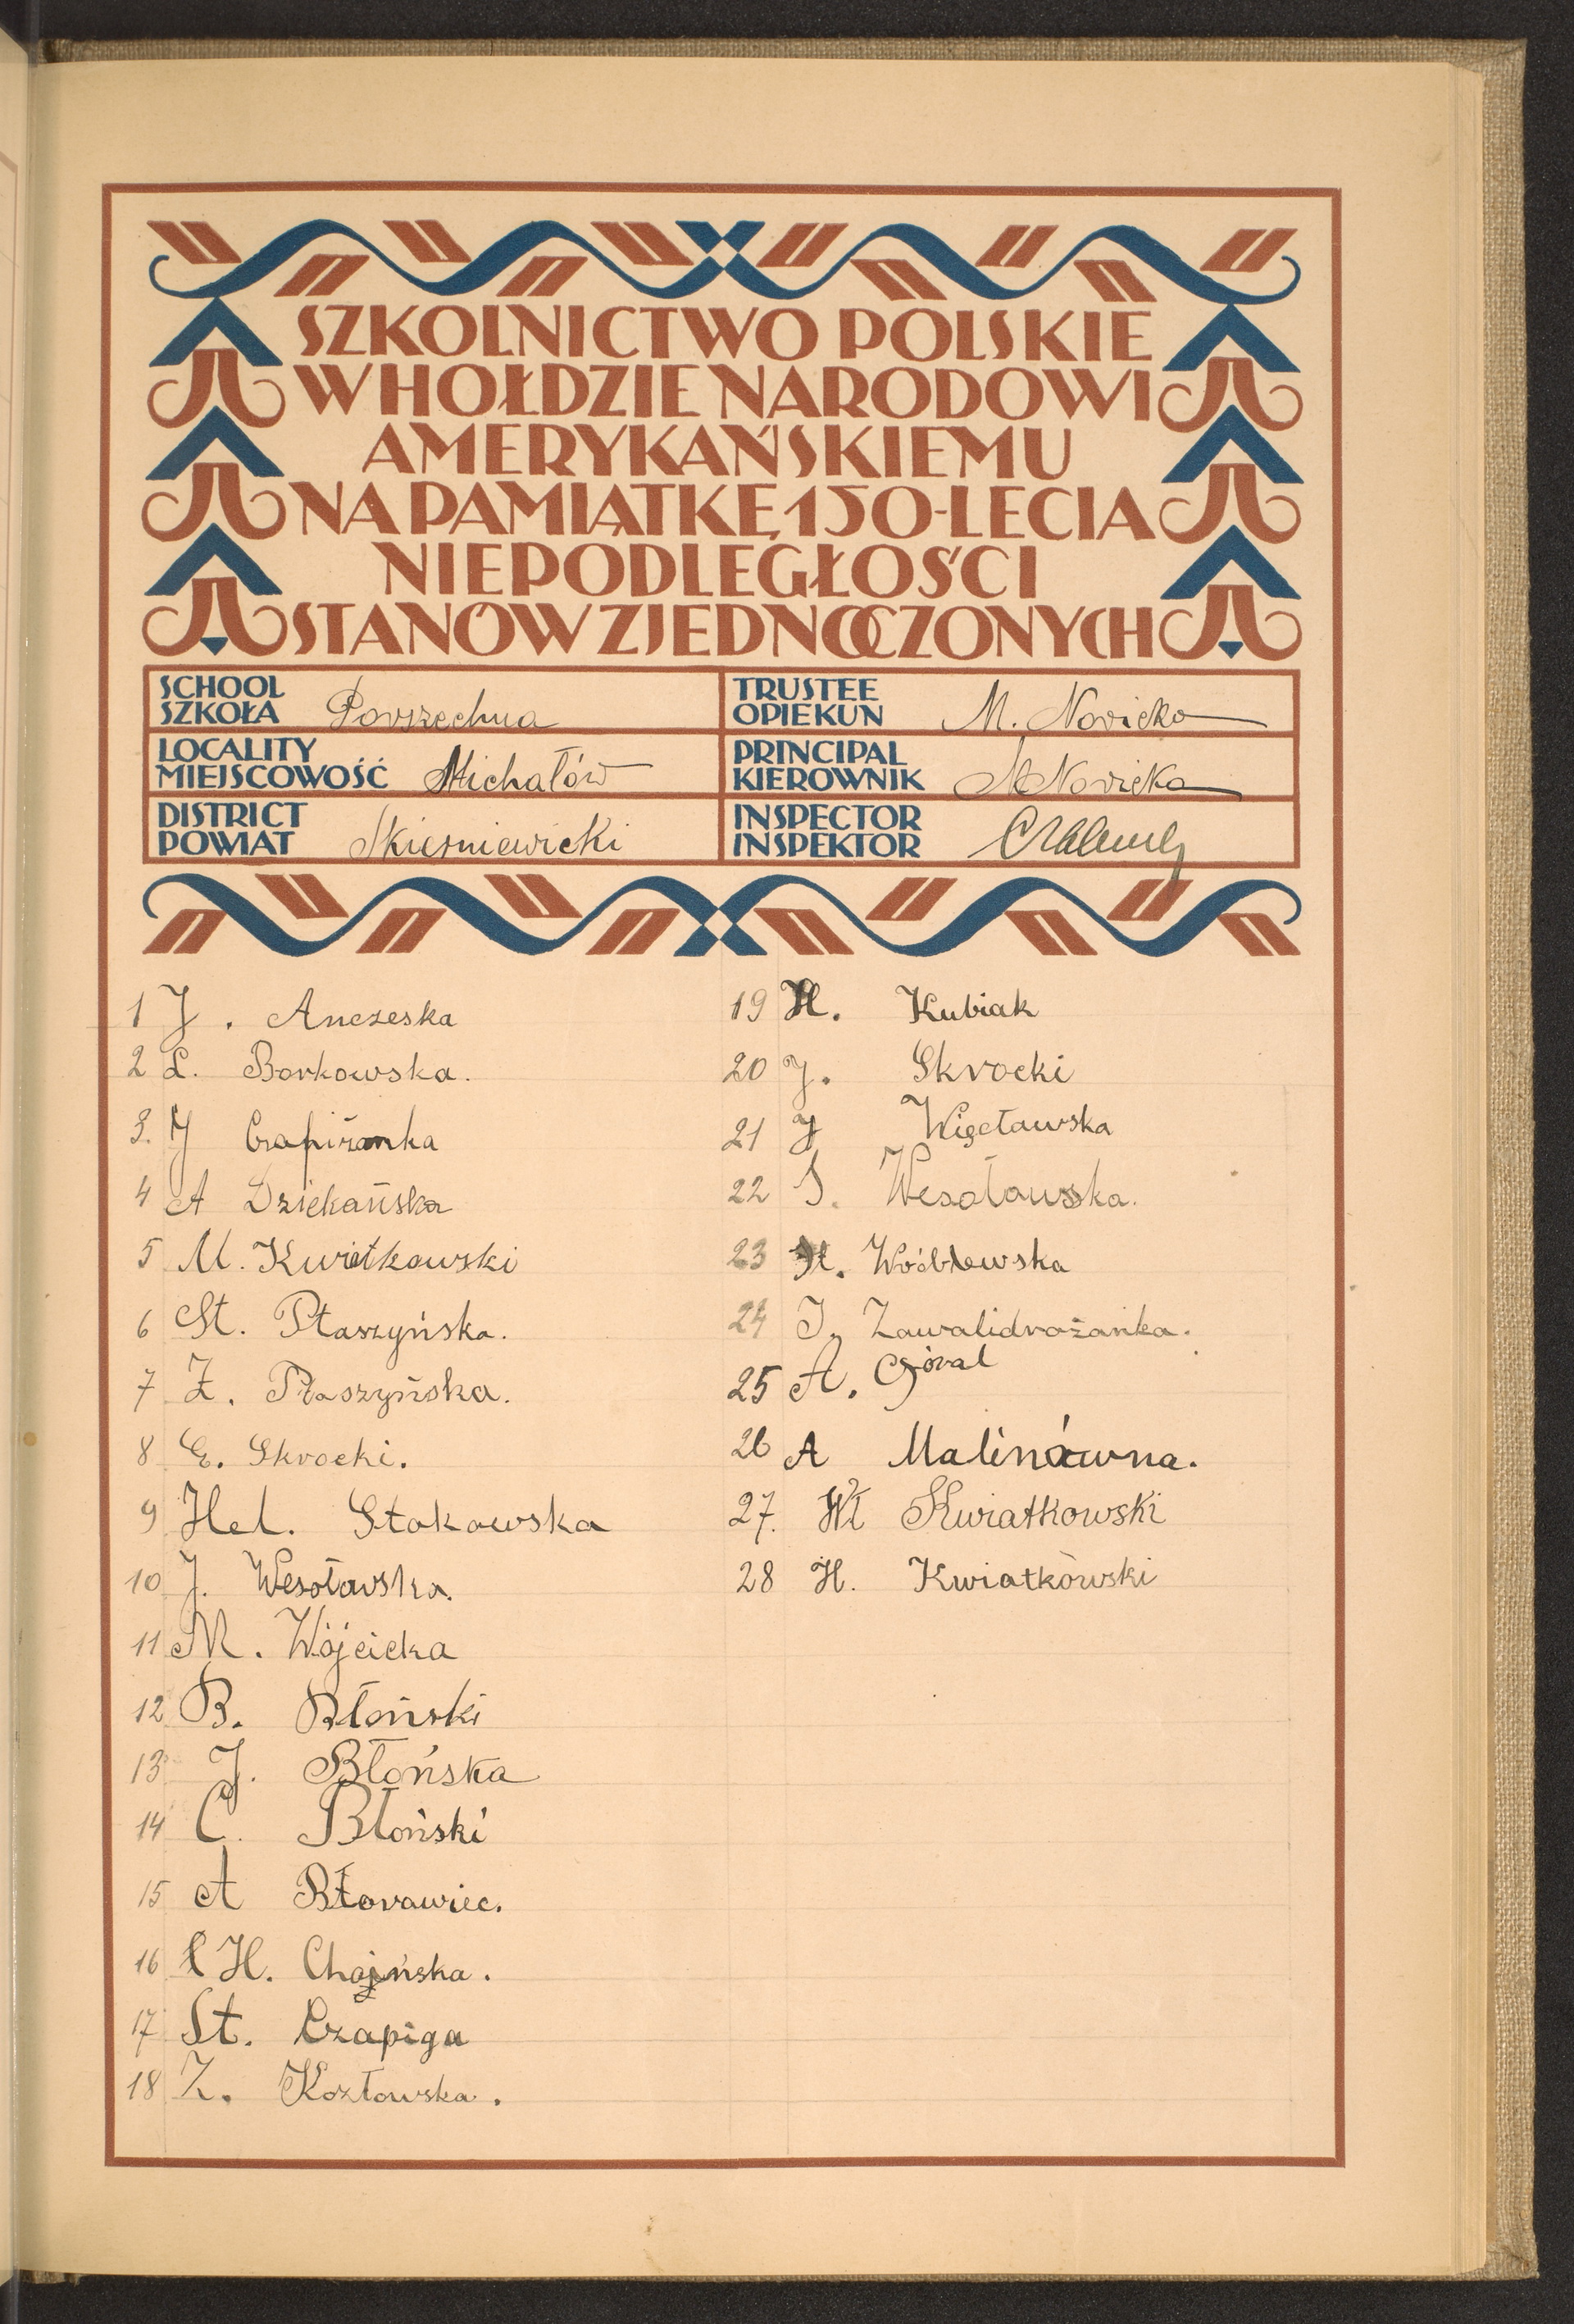 SZKOLNICTWO POLSKIE
W HOŁDZIE NARODOWI
AMERYKAŃSKIEMU
NA PAMIĄTKĘ 150-LECIA
NIEPODLEGŁOŚCI
STANÓW ZJEDNOCZONYCH
SCHOOL
SZKOŁA Powszechna
TRUSTEE
OPIEKUN M. Nowicka
LOCALITY
MIEJSCOWOŚĆ Michałów
PRINCIPAL
KIEROWNIK M Nowicka
DISTRICT
POWIAT Skierniewicki
INSPECTOR
INSPEKTOR
1 J. Anczeska
2 L. Borkowska.
3. J Czapiżanka
4 A Dziekańska
5 M. Kwiatkowski
6 St. Ptaszyńska.
7 Z. Ptaszyńska.
8 E. Skrocki.
9 Hel. Stokowska
10 J. Wesołowska.
11 M. Wójcicka
12 B. Błoński
13 J. Błońska
14 C. Błoński
15 A Błorawiec.
16 H. Chojńska.
17 St. Czapiga
18 Z. Kozłowska.
19 H. Kubiak
20 J. Skrocki
21 J Więcławska
22 S. Wesołowska.
23 H. Wróblewska
24 J. Zawalidrożanka.
25 A. Góral
26 A Malinówna.
27. Wł Kwiatkowski
28 H. Kwiatkowski